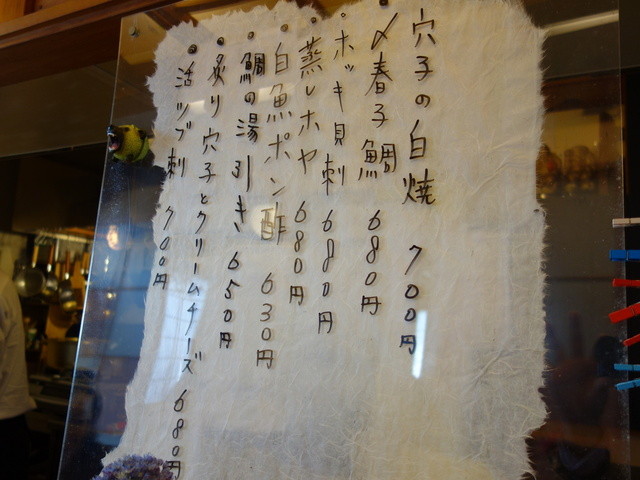 穴子の白焼 700円
〆春子鯛 680円
・ホッキ貝刺 680円
・蒸しホヤ 680円
・白魚ポン酢 630円
・鯛の湯引き 650円
・炙り穴子とクリームチーズ 680円
・活ツブ刺 700円